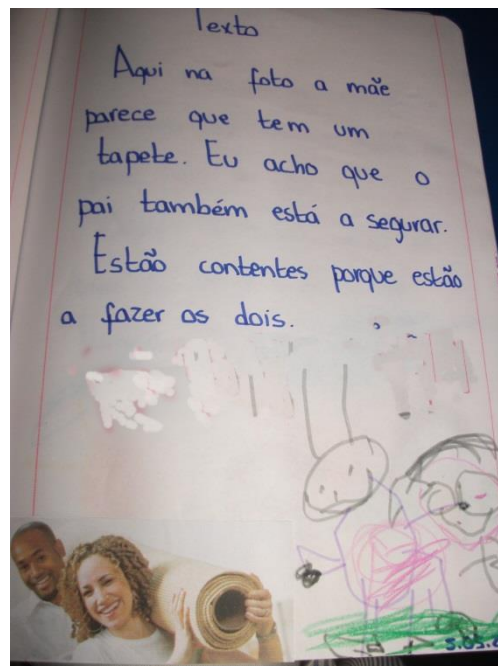 Texto
Aqui na foto a mãe
parece que tem um
tapete. Eu acho que o
pai também está a segurar.
Estão contentes porque estão
a fazer os dois.